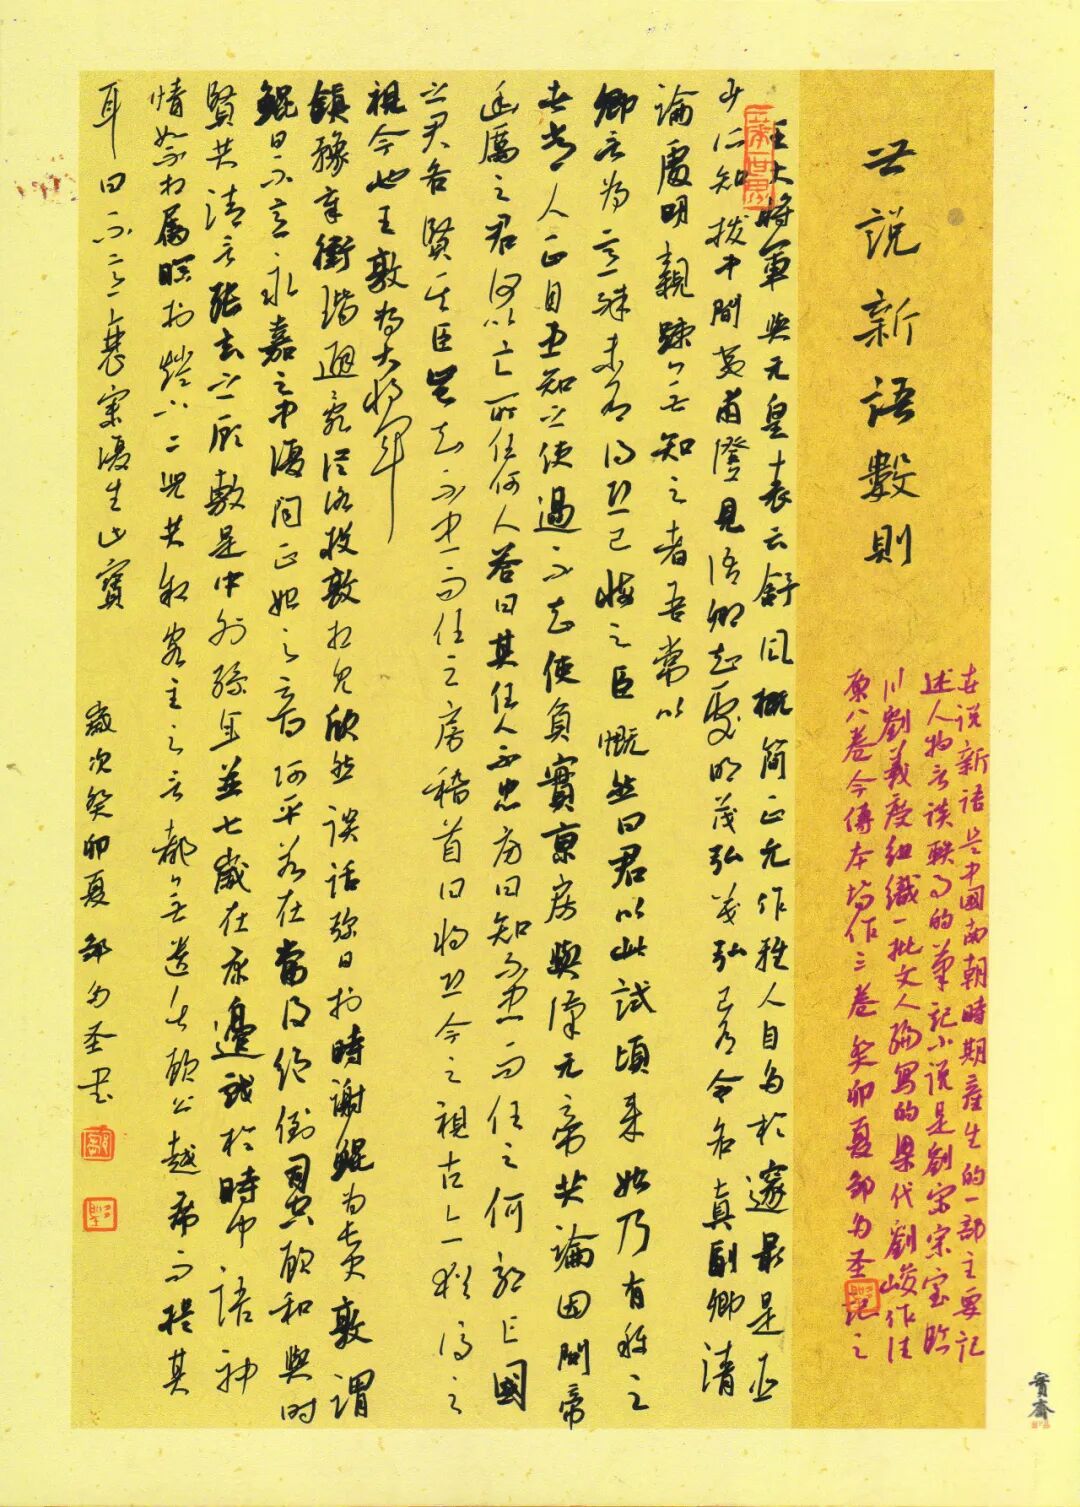 世說新語數則
世说新語是中國南朝時期産生的一部主要記
述人物言谈轶事的筆記小说是劉宋宗室临
川劉義慶组織一批文人编寫的梁代劉峻作注
原八卷今傳本皆作三卷 癸卯夏邹为圣记之
王大将軍與元皇表云舒風概简正允作雅人自多於邃最是臣
少所知拔中间夷甫澄見语卿知處明茂弘茂弘已有令名真副卿清
論處明親疎无知之者吾常以
卿言为意殊未有得恐已悔之臣慨然曰君以此試頃来始乃有称之
者言常人正自患知之使過不知使負實京房與漢元帝共論因問帝
幽厲之君何以亡所任何人答曰其任人不忠房曰知不忠而任之何耶亡國
之君各賢其臣豈知不忠而任之房稽首曰将恐今之视古亦猶后之
视今也王敦为大将軍
鎮豫章衛玠避亂从洛投敦相見欣然谈話弥日于時謝鯤为長史敦謂
鯤曰不意永嘉之中復闻正始之音阿平若在當復绝倒司空顧和與时
賢共清言张玄之顧敷是中外孫年並七歲在床邊戲於時闻語神
情如不相屬瞑於燈下二兒共叙客主之言都无遗失顧公越席而提其
耳曰不意衰宗復生此寶
歲次癸卯夏 邹为圣书
寶齋